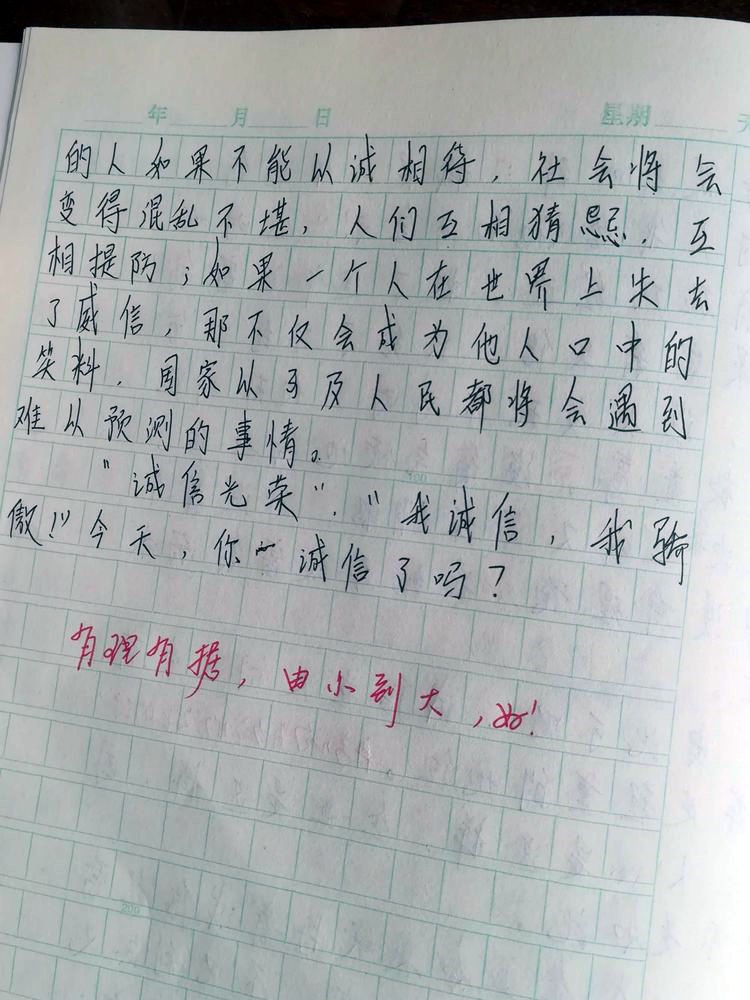 年 月 日 星期 天
的人如果不能以诚相待，社会将会
变得混乱不堪，人们互相猜忌，互
相提防；如果一个人在世界上失去
了威信，那不仅会成为他人口中的
笑料，国家以及人民都将会遇到
难以预测的事情。
“诚信光荣”，“我诚信，我骄
傲！”今天，你诚信了吗？
有理有据，由小到大，好！
200